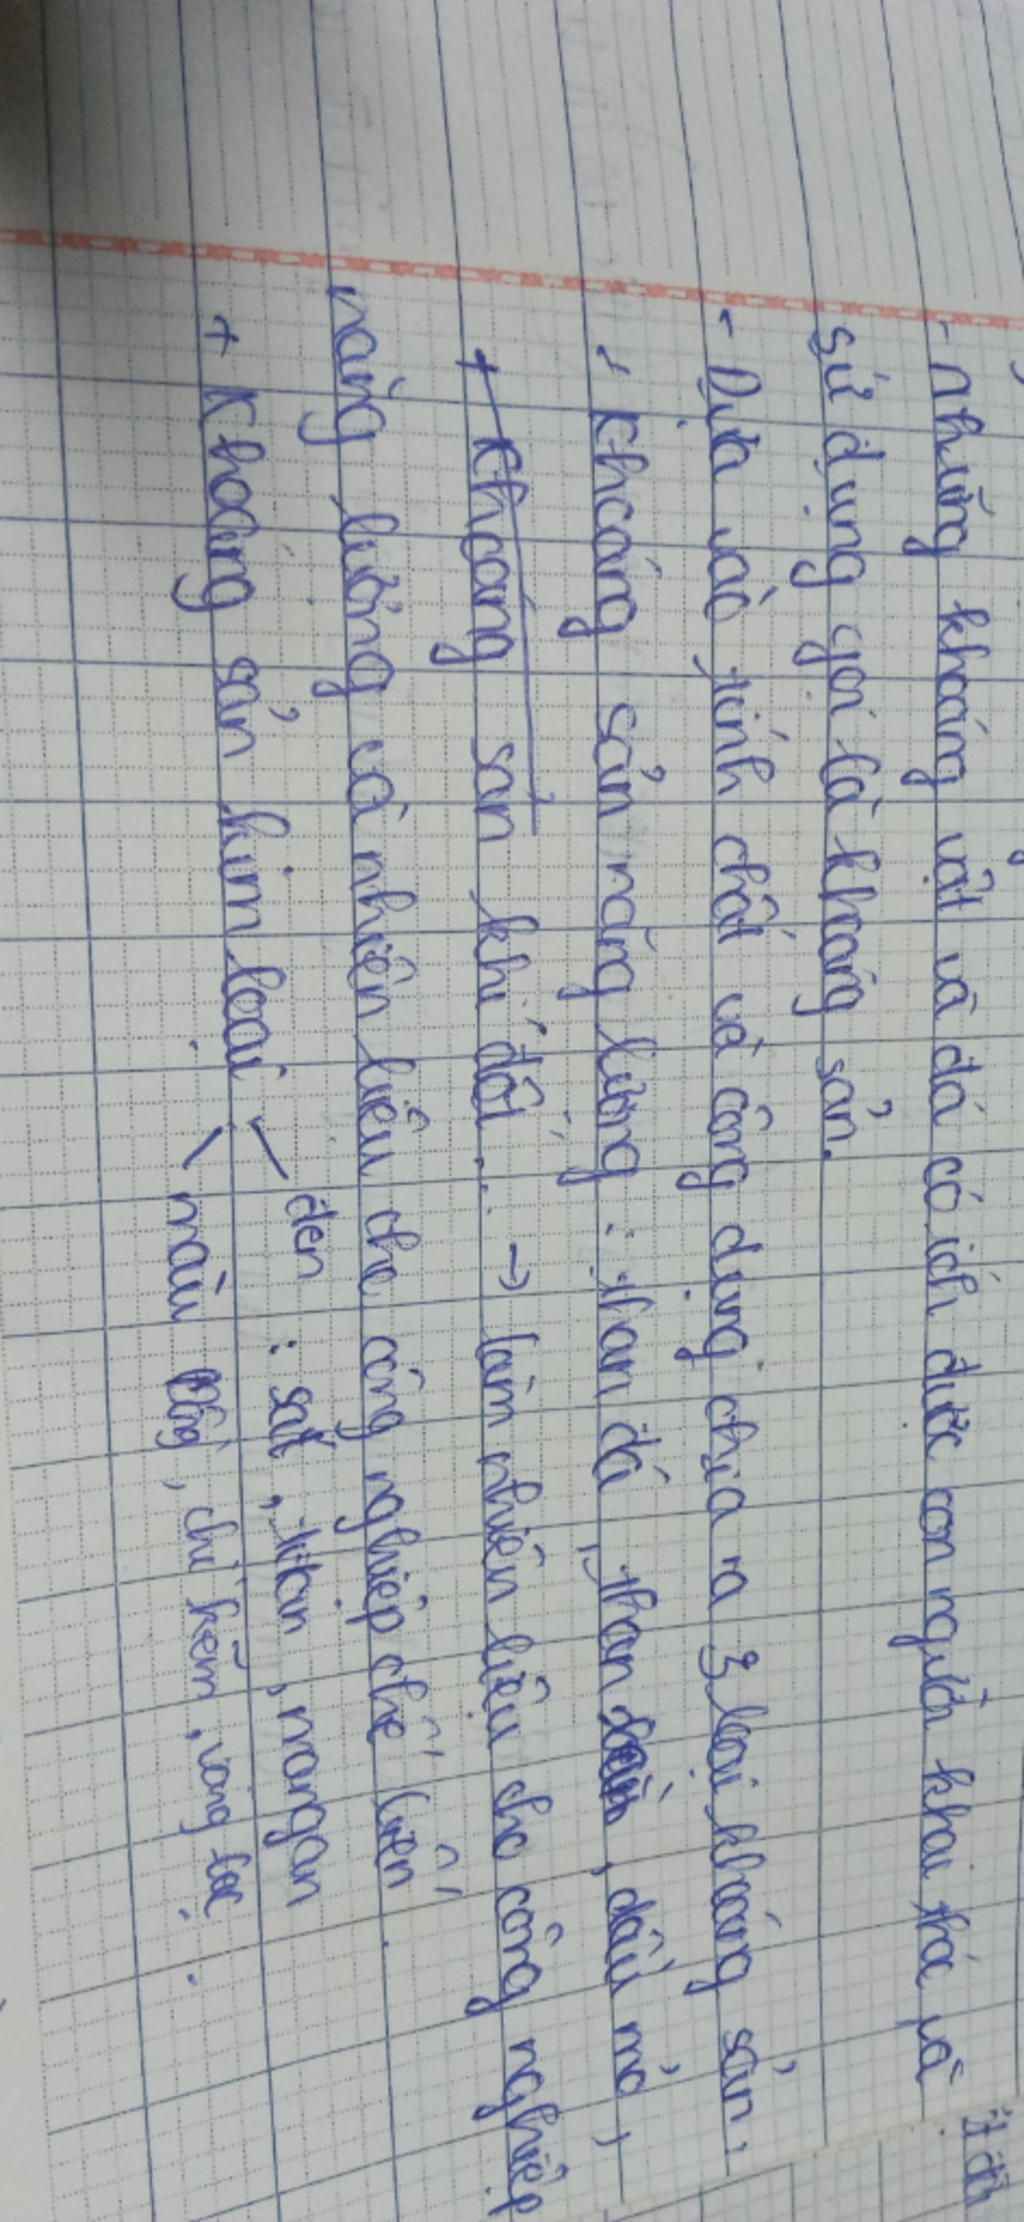 - Những khoáng vật và đá có ích được con người khai thác và
sử dụng gọi là khoáng sản.
- Dựa vào tính chất và công dụng chia ra 3 loại khoáng sản:
- Khoáng sản năng lượng: than đá, than, dầu mỏ,
+ Khoáng sản khí đốt... → làm nhiên liệu cho công nghiệp
năng lượng và nhiên liệu cho công nghiệp chế biến.
đen : sắt, titan, mangan
+ Khoáng sản kim loại
màu đồng, chì kẽm,